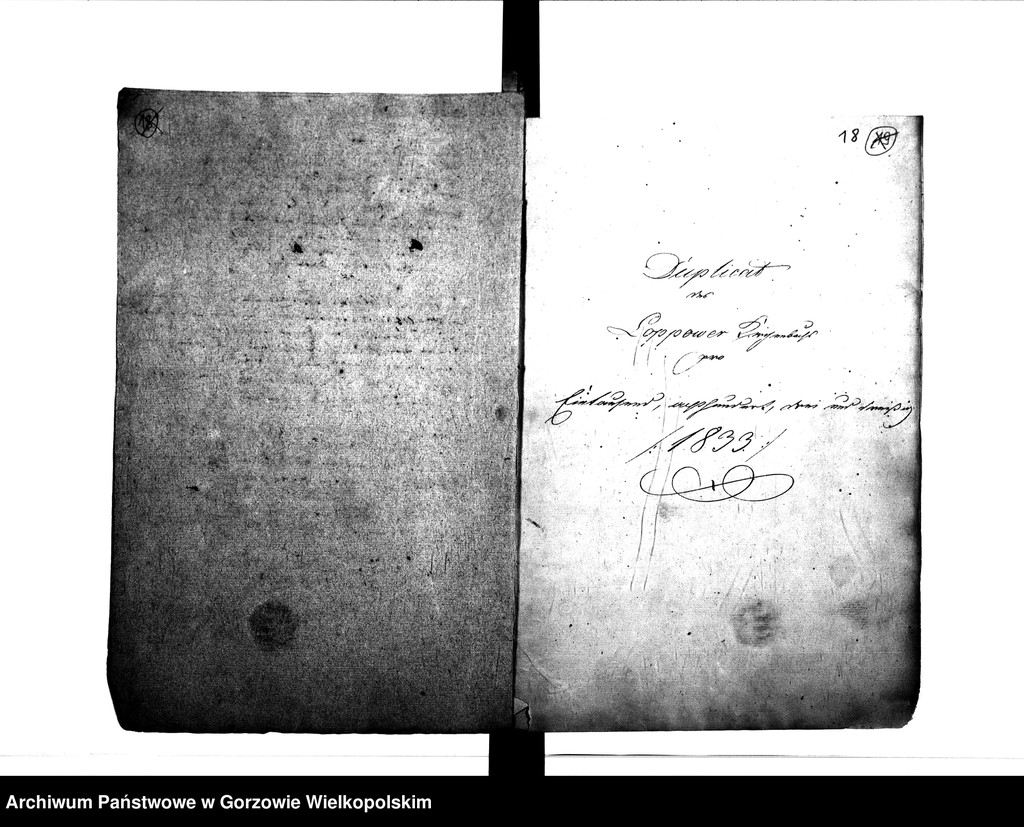 18
18 19
Duplicat
des
Loppower Kirchenbuchs
pro
Eintausend, achthundert, drei und dreißig
/: 1833 :/
Archiwum Państwowe w Gorzowie Wielkopolskim